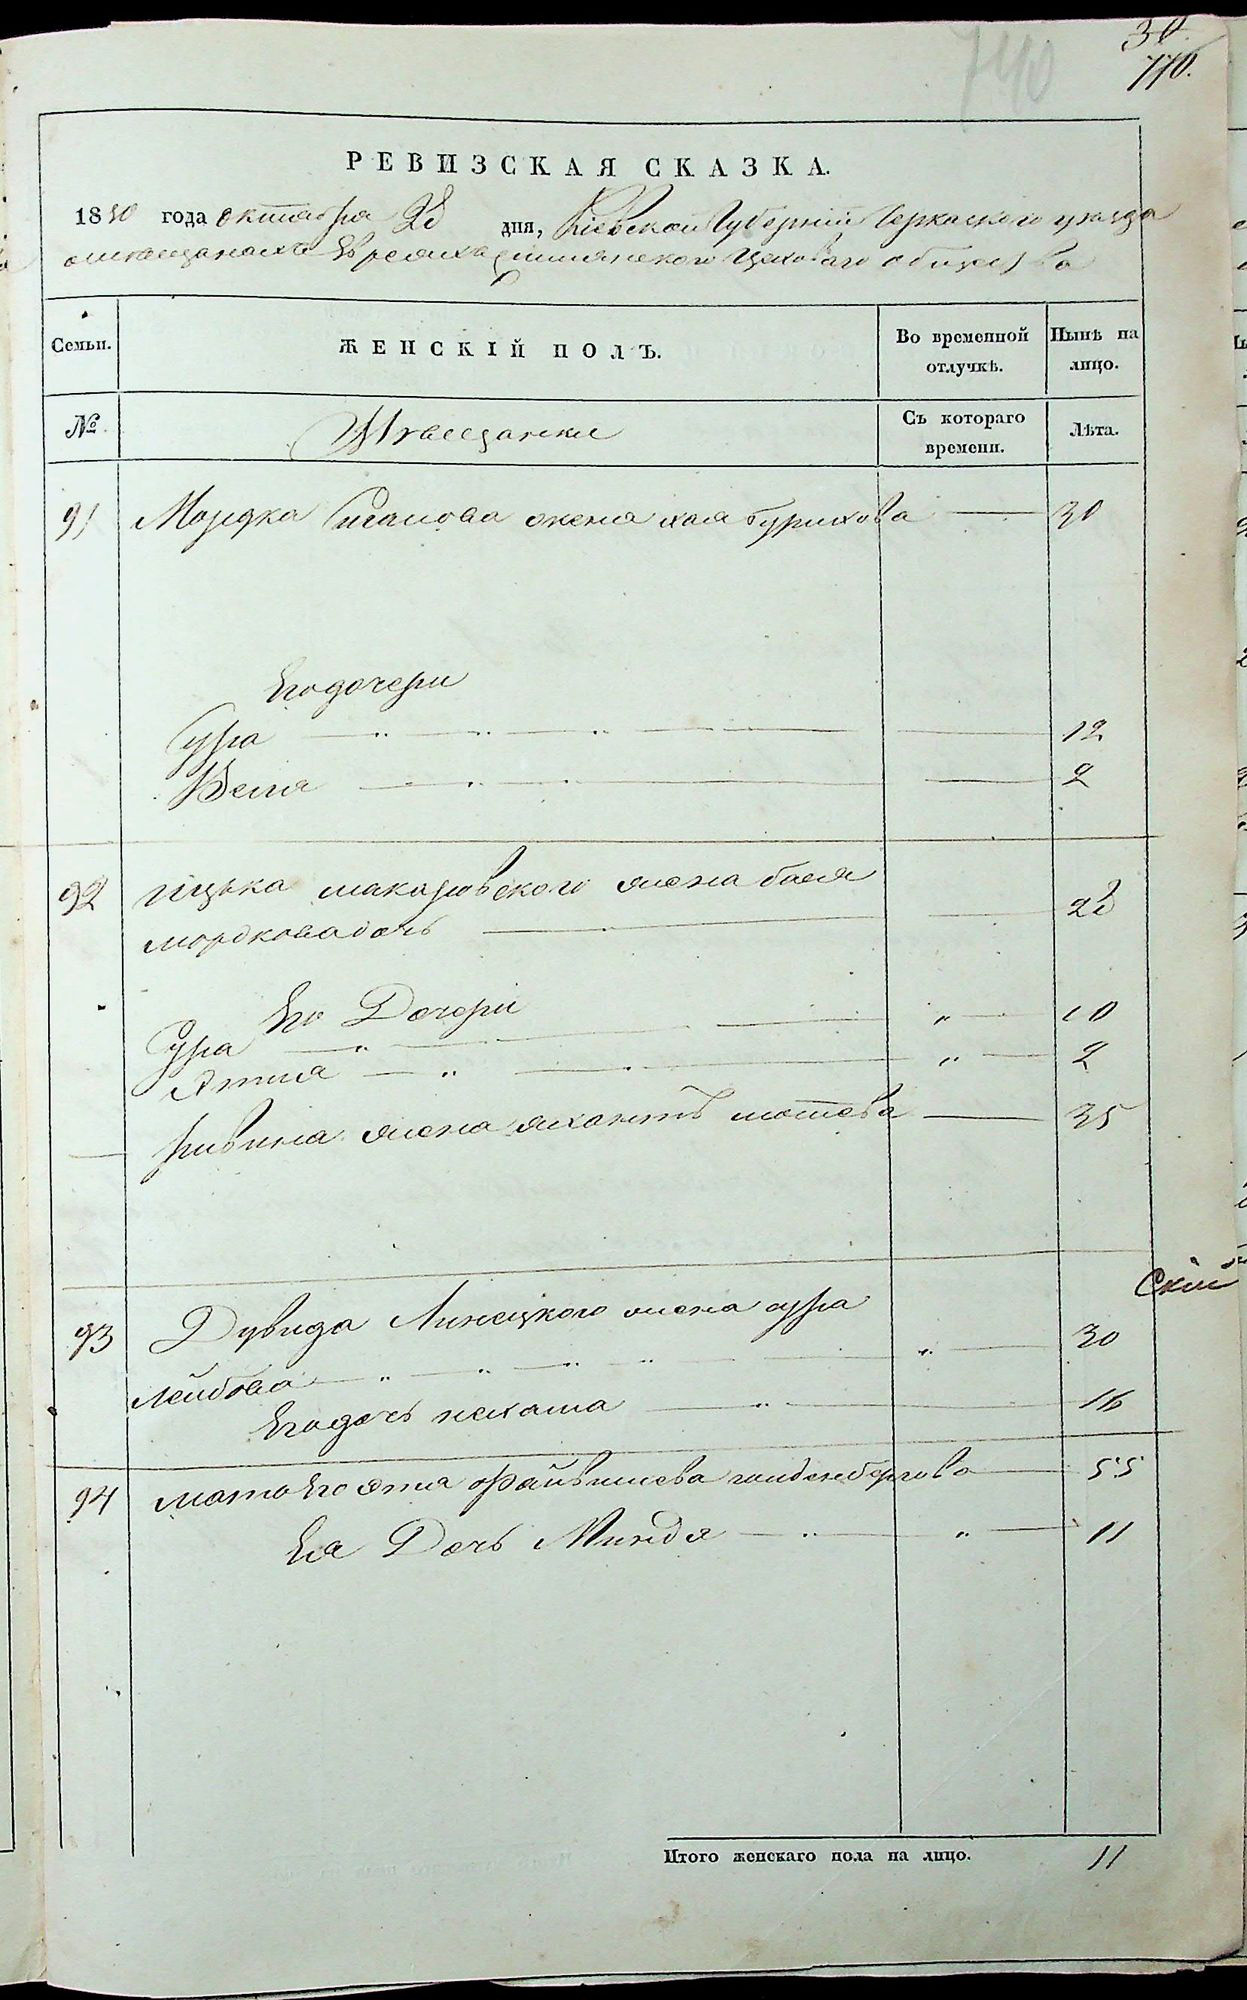 30.
770.
740
РЕВИЗСКАЯ СКАЗКА.
1850 года октября 28 дня, Кіевской Губерніи Черкаского уезда
о мещанахъ Евреяхъ Смилянского цехового общества
Семьи. ЖЕНСКІЙ ПОЛЪ. Во временной отлучкѣ. Нынѣ на лицо.
№ Мещанки Съ котораго времени. Лѣта.
91 Мордка жена хая 30
Егодочери
Сура 12
Бейля 2
92 Ицька макаровского жена бася
мордковадочь 28
Его Дочери
Сура " 10
" 2
ривина жена 35
93 Дувида Линецкого жена сура
лейбова " 30
Егодочь нехама " 16
Скій
94 мать Его Файвишева голденбергова 55
Ея Дочь Миндя " 11
Итого женскаго пола на лицо. 11